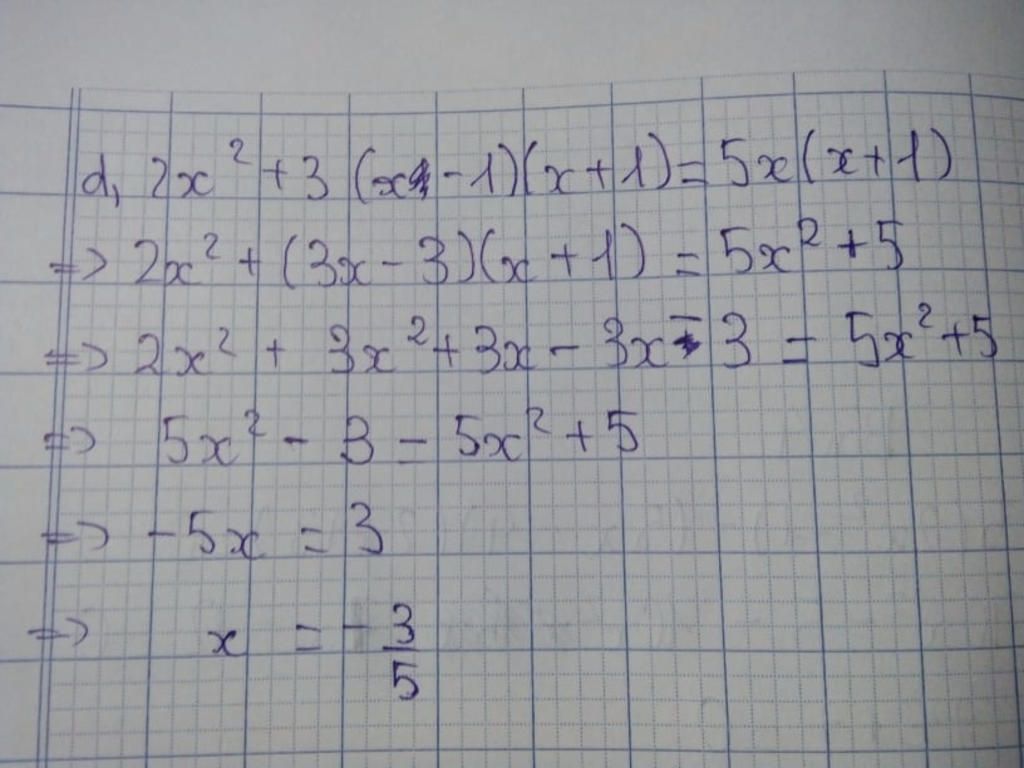 d, 2x² + 3 (x - 1)(x + 1) = 5x(x + 1)
=> 2x² + (3x - 3)(x + 1) = 5x² + 5
=> 2x² + 3x² + 3x - 3x - 3 = 5x² + 5
=> 5x² - 3 = 5x² + 5
=> -5x = 3
=> x = -3/5